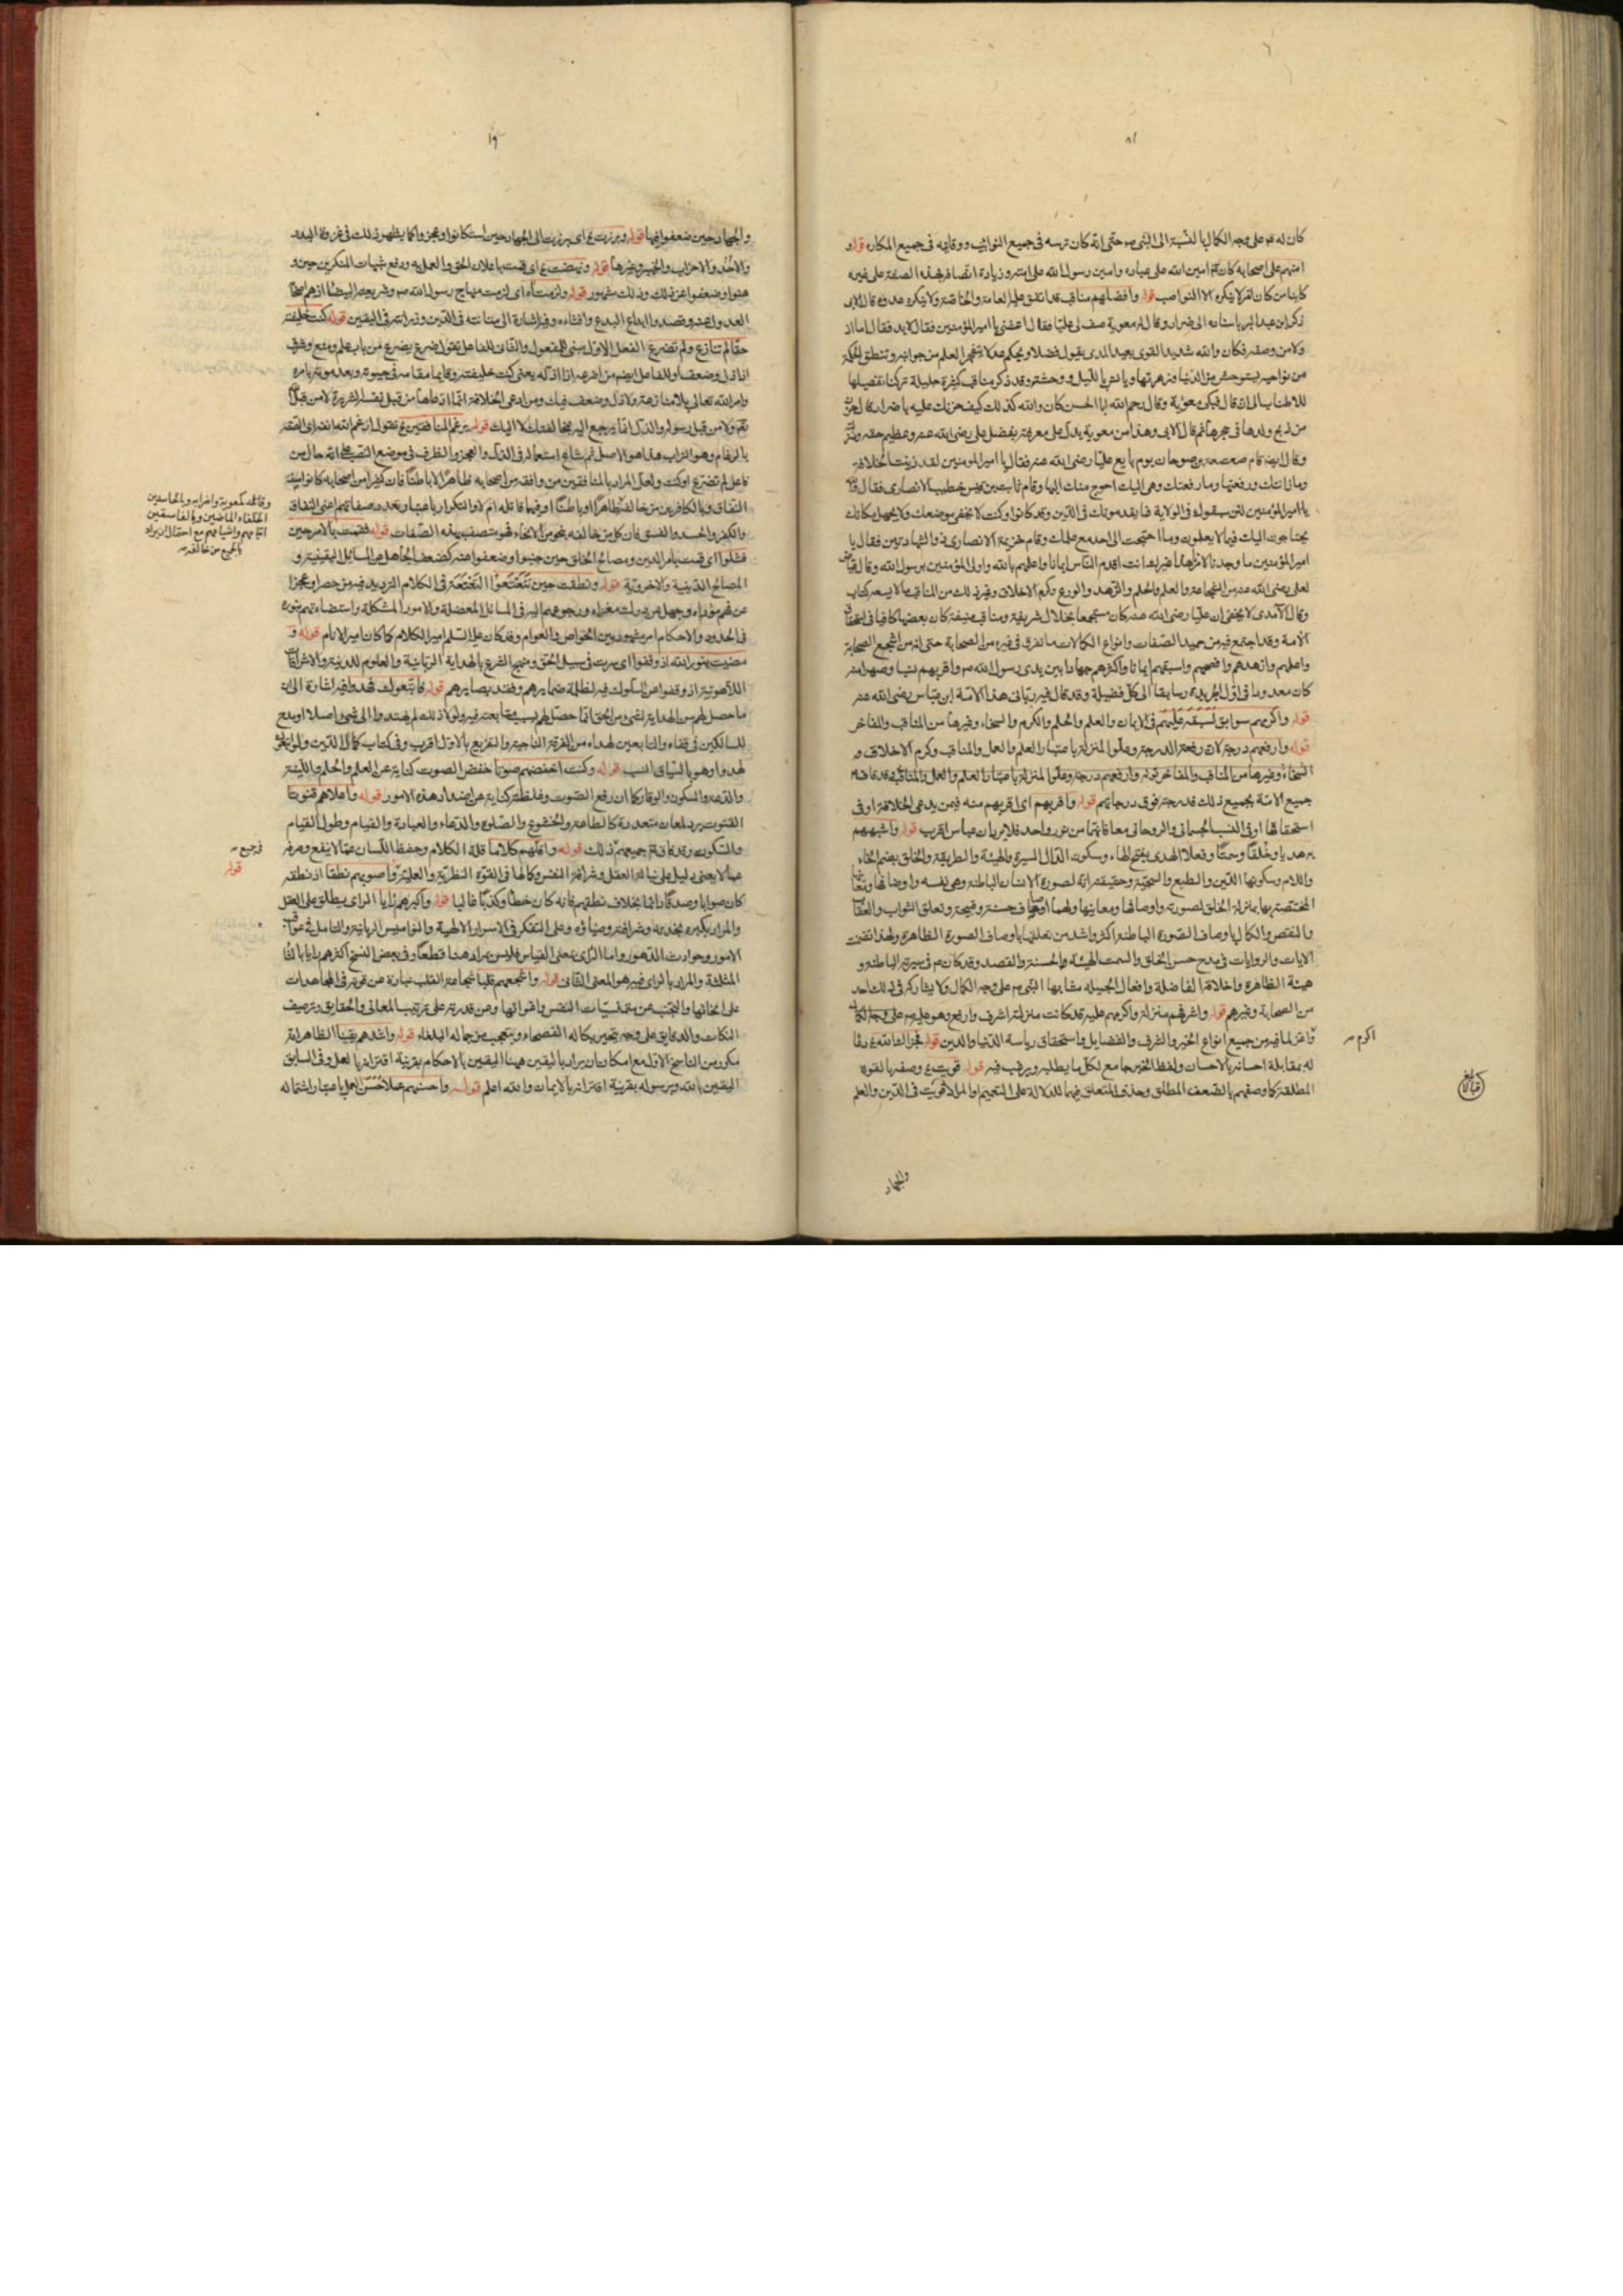 كان له عم على وجه الكمال بالنسبة الى النبي ص حتى انه كان ترسه في جميع النوائب ووقايه في جميع المكاره قوله و
امنهم على اصحابه كان عم امين الله على عباده وامين رسول الله على امته وزيادة اتصافه بهذه الصفة على غيره
كابنا من كان امر لا ينكره الا النواصب قوله وافضلهم مناقب قد اتفق عليه العامة والخاصة ولا ينكره عدوه قال الابي
ذكر ابن عبد البر باسناده الى ضرار وقال له معوية صف لي عليا فقال اعفني يا امير المؤمنين فقال لا بد فقال اما اذ
ولا من وصفه فكان والله شديد القوى بعيد المدى يقول فضلا ويحكم عدلا يتفجر العلم من جوانبه وتنطق الحكمة
من نواحيه يستوحش من الدنيا وزهرتها ويانس بالليل ووحشته وقد ذكر مناقب كثيرة جليلة تركنا تفصيلها
للاطناب الى ان قال فبكى معوية وقال رحم الله ابا الحسن كان والله كذلك كيف حزنك عليه يا ضرار قال حزن
من ذبح ولدها في حجرها ثم قال الابي وهذا من معوية يدل على معرفته بفضل علي رضي الله عنه وعظيم حقه
وقال ايضا قام صعصعة بن صوحان يوم بايع عليا رضي الله عنه فقال يا امير المؤمنين لقد زينت الخلافة
وما زانتك ورفعتها وما رفعتك وهي اليك احوج منك اليها وقام ثابت بن قيس خطيب الانصاري فقال
يا امير المؤمنين لئن سبقوك في الولاية فما يقدمونك في الدين وقد كانوا وكنت لا يخفى موضعك ولا يجهل مكانك
يحتاجون اليك فيما لا يعلمون وما احتجت الى احد مع علمك وقام خزيمة الانصاري ذو الشهادتين فقال يا
امير المؤمنين ما وجدنا لامرنا هذا غيرك انت اقدم الناس ايمانا واعلمهم بالله واولى المؤمنين برسول الله وقال
لعلي رضي الله عنه من الشجاعة والعلم والحلم والزهد والورع وكرم الاخلاق وغير ذلك من المناقب ما لا يسعه كتاب
وقال الآمدي لا يخفى ان عليا رضي الله عنه كان مستجمعا بخلال شريفة ومناقب منيفة كان بعضها كافيا في استحقاق
الامة وقد اجتمع فيه من حميد الصفات وانواع الكمالات ما تفرق في غيره من الصحابة حتى انه من اشجع الصحابة
واعلمهم وازهدهم وافصحهم واسبقهم ايمانا واكثرهم جهادا بين يدي رسول الله ص واقربهم نسبا وصهرا منه
كان معدودا في اول الجريدة وسابقا الى كل فضيلة وقد قال فيه رباني هذه الامة ابن عباس رضي الله عنه
قوله واكرمهم سوابق لسبقه عليهم في الايمان والعلم والحلم والكرم والسخاء وغيرها من المناقب والمفاخر
قوله وارفعهم درجة لان رفعة الدرجة وعلو المنزلة باعتبار العلم والعمل والمناقب وكرم الاخلاق و
السخاء وغيرها من المناقب والمفاخر قوله وارفعهم درجة وعلو المنزلة باعتبار العلم والعمل والمناقب
جميع الامة بجميع ذلك فدرجته فوق درجاتهم قوله واقربهم اي اقربهم منه فيمن يدعي الخلافة او في
استحقاقها او في النسب الجسماني والروحاني معا من نور واحد فلا يرد ان عباس اقرب قوله واشبههم
به هديا وخلقا وسمتا وفعلا الهدى بفتح الهاء وسكون الدال السيرة والهيئة والطريقة والخلق بضم الخاء
واللام وسكونها الدين والطبع والسجية وحقيقته انه لصورة الانسان الباطنة وهي نفسه واوصافها ومعانيها
المختصة بها بمنزلة الخلق لصورته واوصافها ومعانيها ولهما اوصاف حسنة وقبيحة وتعلق الثواب والعقاب
والنقص والكمال باوصاف الصورة الباطنة اكثر واشد من تعلقها باوصاف الصورة الظاهرة ولهذا تضمنت
الايات والروايات في مدح حسن الخلق والسمت الهيئة والحسنة والقصد وقد كان عم في سيرته الباطنة و
هيئة الظاهرة واخلاقه الفاضلة وافعال الجميلة مشابها النبي ص على وجه الكمال ولا يشاركه في ذلك احد
من الصحابة وغيرهم قوله واشرفهم منزلة واكرمهم عليه قد كانت منزلته اشرف وارفع وهو عليه ص على وجه الكمال
واعز لما فيه من جميع انواع الخير والشرف والفضايل واستحقاق رياسة الدنيا والدين قوله فجزاك الله
له بمقابلة احسانه بالاحسان ولفظ الخير جامع لكل ما يطلب ويرغب فيه قوله قويت وصفه بالقوة
المطلقة كما وصفهم بالضعف المطلق وحذف المتعلق فيهما للدلالة على التعميم او المراد قويت في الدين والعلم
اكرم
والجهاد
١٩
والجهاد حين ضعفوا فيها قوله وبرزت اي برزت الى الجهاد حين استكانوا وعجزوا كما يظهر ذلك في غزوة البدر
والاحد والاحزاب والخيبر وغيرها قوله ونهضت اي قمت باعلان الحق والعمل به ودفع شبهات المنكرين حين و
هنوا وضعفوا عن ذلك وذلك مشهور قوله ولزمت اي لزمت منهاج رسول الله ص وشريعته البيضاء
العدول عنه وقصدوا ابداع البدع وافشاءه وفيه اشارة الى متانته في الدين في اليقين قوله كنت خليفته
حقا لم تنازع ولم تضرع الفعل الاول مبني للمفعول والثاني للفاعل تقول ضرع يضرع من باب علم ومنع وشرف
اذا ذل وضعف وللفاعل ايضا من اضرعه اذا اذله يعني كنت خليفته وقايما مقامه في حيوته وبعد موته بامره
وامر الله تعالى بلا منازعة ولا ذل وضعف فيك ومن ادعى الخلافة انما ادعاها من قبل نفسه الشريرة لا من قبل الله
تعالى ولا من قبل رسوله والذل انما يرجع اليه لا اليك قوله برغم المنافقين تقول ارغم الله انفه اي الصقه
بالرغام وهو التراب هذا هو الاصل ثم شاع استعماله في الذل والعجز والظرف في موضع النصب على انه حال من
فاعل لم تضرع او كنت ولعل المراد بالمنافقين من وافقه من اصحابه ظاهرا لا باطنا فان كثيرا من اصحابه كانوا
النفاق وبالكافرين من خالفه ظاهرا او باطنا او فيهما قاتله ام لا والتكرار باعتبار تعدد صفاتهم اعني النفاق
والكفر والحسد والفسق فان كل من خالفه بنحو من الانحاء فهو متصف بهذه الصفات قوله فقمت بالامر حين
فشلوا اي قمت بامر الدين ومصالح الخلق حين جبنوا وضعفوا عنه كضعف الجاهل عن المسائل اليقينية و
المصالح الدينية والاخروية قوله ونطقت حين تتعتعوا التعتعة في الكلام التردد فيه من حصر او عجز
في الحدود والاحكام امر مشهور بين الخواص والعوام وقد كان عليه السلام امير الكلام كما كان امير الانام قوله و
مضيت بنور الله اذ وقفوا اي سرت في سبيل الحق ومنهج الشرع بالهداية الربانية والعلوم اللدنية والاشراقات
اللاهوتية اذ وقفوا عن السلوك فيه لظلمة ضمايرهم وفقد بصايرهم قوله فاتبعوك فهدوا فيه اشارة الى ان
ما حصل لهم من الهداية لشيء من الحق انما حصل لهم بسبب متابعته فيه ولولا ذلك لم يهتدوا الى شيء اصلا
لهدوا وهو بالسياق انسب قوله وكنت اخفضهم صوتا خفض الصوت كناية عن العلم والحلم والليفة
والدعة والسكون والوقار كما ان رفع الصوت وغلظته كناية عن اضداد هذه الامور قوله واعلاهم قنوتا
القنوت يرد لمعان متعددة كالطاعة والخشوع والصلوة والدعاء والعبادة والقيام وطول القيام
والسكون وقد فاق عم جميعهم ذلك قوله واقلهم كلاما قلة الكلام وحفظ اللسان عما لا ينفع وصرفه
عما لا يعني دليل على نباهة العقل وشرافة النفس وكمالها في القوة النظرية والعملية واصوبهم نطقا اذ نطقه
كان صوابا وصدقا دائما بخلاف نطقهم فانه كان خطا وكذبا غالبا قوله واكبرهم رايا الراي يطلق على العقل
والمراد بكبره وشرافته وضياؤه وعلى التفكر في الاسرار الالهية والنواميس الربانية والتامل في عواقب
الامور وحوادث الدهور واما الراي بمعنى القياس فليس بمراد هنا قطعا وفي بعض النسخ اكثرهم رايا بالثاء
المثلثة والمراد بالراي فيه هو المعنى الثاني قوله واشجعهم قلبا شجاعة القلب عبارة عن قوته في المجاهدات
النكات والدقايق على وجه يتحير بكماله الفصحاء ويتعجب من جماله البلغاء قوله واشدهم يقينا الظاهر انه
مكرر من الناسخ الاول مع امكان ان يراد باليقين ههنا اليقين بالاحكام بقرينة اقترانه بالعمل وفي السابق
اليقين بالله وبرسوله بقرينة اقترانه بالايمان والله اعلم قوله واحسنهم عملا حسن العمل باعتبار اشتماله
وقاتله كمعوية واضرابه وبالحاسدين
الخلفاء الماضين وبالفاسقين
اتباعهم واشياعهم مع احتمال ان يراد
بالجميع من خالفه
في جميع
قوله